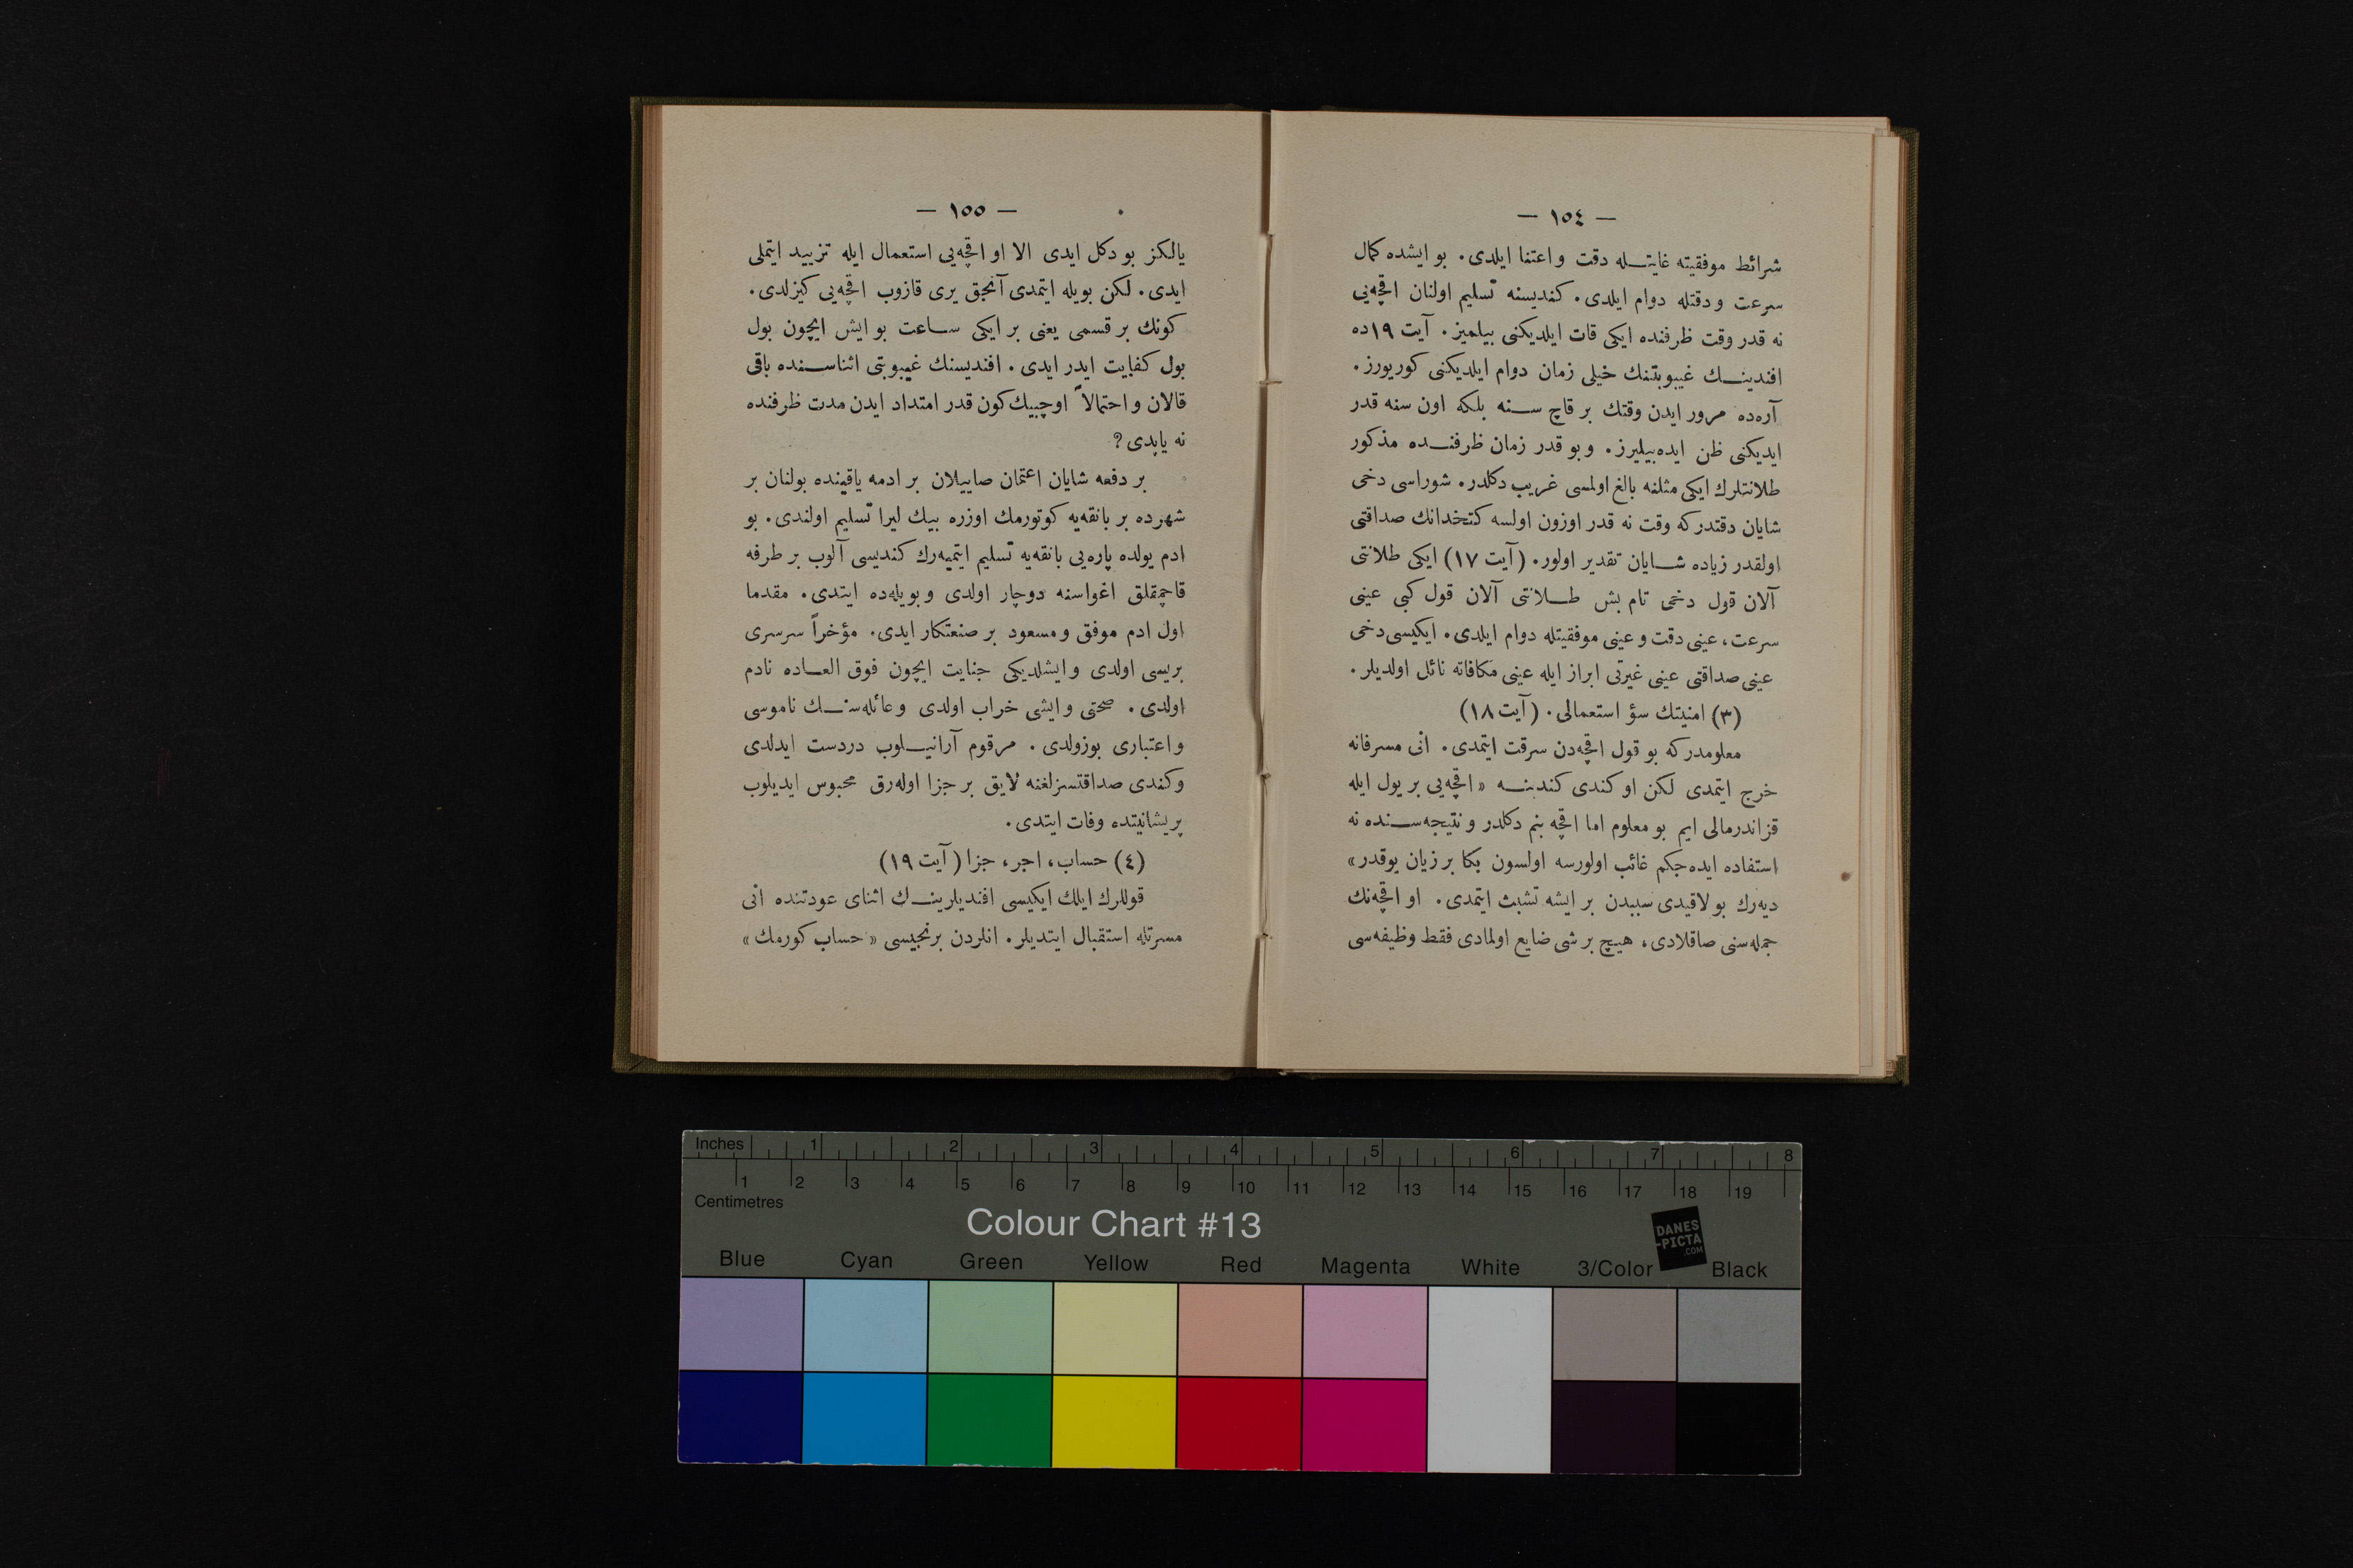 — ١٥٤ —
شرائط موفقيته غايتـله دقت و اعتنا ايلدى. بو ايشده كمال
سرعت و دقتله دوام ايلدى. كنديسنه تسليم اولنان اقچه‌يى
نه قدر وقت ظرفنده ايكى قات ايلديكنى بيلميز. آيت ١٩ده
افندينـك غيبوبتنك خيلى زمان دوام ايلديكنى كوريورز.
آره‌ده مرور ايدن وقتك بر قاچ سـنه بلكه اون سنه قدر
ايديكنى ظن ايده‌بيليرز. و بو قدر زمان ظرفنـده مذكور
طلانتلرك ايكى مثلنه بالغ اولمسى غريب دكلدر. شوراسى دخى
شايان دقتدر كه وقت نه قدر اوزون اولسه كتخدانك صداقتى
اولقدر زياده شـايان تقدير اولور. (آيت ١٧) ايكى طلانتى
آلان قول دخى تام بش طـلانتى آلان قول كبى عينى
سرعت، عينى دقت و عينى موفقيتله دوام ايلدى. ايكيسى دخى
عينى صداقتى عينى غيرتى ابراز ايله عينى مكافاته نائل اولديلر.
(٣) امنيتك سؤ استعمالى. (آيت ١٨)
معلومدر كه بو قول اقچه‌دن سرقت ايتمدى. انى مسرفانه
خرج ايتمدى لكن او كندى كندينـه « اقچه‌يى بر يول ايله
قزاندرمالى ايم بو معلوم اما اقچه بنم دكلدر و نتيجه‌سـنده نه
استفاده ايده‌جكم غائب اولورسه اولسون بكا بر زيان يوقدر »
ديه‌رك بو لاقيدى سببدن بر ايشه تشبث ايتمدى. او اقچه‌نك
جمله‌سنى صاقلادى، هيچ بر شى ضايع اولمادى فقط وظيفه‌سى
— ١٥٥ —
يالكز بو دكل ايدى الا او اقچه‌يى استعمال ايله تزييد ايتملى
ايدى. لكن بويله ايتمدى آنجق يرى قازوب اقچه‌يى كيزلدى.
كونك بر قسمى يعنى بر ايكى سـاعت بو ايش ايچون بول
بول كفايت ايدر ايدى. افنديسنك غيبوبتى اثناسـنده باقى
قالان و احتمالاً اوچبيك كون قدر امتداد ايدن مدت ظرفنده
نه ياپدى؟
بر دفعه شايان اعتمان صاييلان بر ادمه ياقينده بولنان بر
شهرده بر بانقه‌يه كوتورمك اوزره بيك ليرا تسليم اولندى. بو
ادم يولده پاره‌يى بانقه‌يه تسليم ايتميه‌رك كنديسى آلوب بر طرفه
قاچمقلق اغواسنه دوچار اولدى و بويله‌ده ايتدى. مقدما
اول ادم موفق و مسعود بر صنعتكار ايدى. مؤخراً سرسرى
بريسى اولدى و ايشلديكى جنايت ايچون فوق العـاده نادم
اولدى. صحتى و ايشى خراب اولدى و عائله‌سنـك ناموسى
و اعتبارى بوزولدى. مرقوم آرانيـلوب دردست ايدلدى
و كندى صداقتسزلغنه لايق بر جزا اوله‌رق محبوس ايديلوب
پريشانيتده وفات ايتدى.
(٤) حساب، اجر، جزا (آيت ١٩)
قوللرك ايلك ايكيسى افنديلرينـك اثناى عودتنده انى
مسرتله استقبال ايتديلر. انلردن برنجيسى « حساب كورمك »
Inches 1 2 3 4 5 6 7 8
1 2 3 4 5 6 7 8 9 10 11 12 13 14 15 16 17 18 19
Centimetres
Colour Chart #13
DANES
-PICTA
.COM
Blue Cyan Green Yellow Red Magenta White 3/Color Black